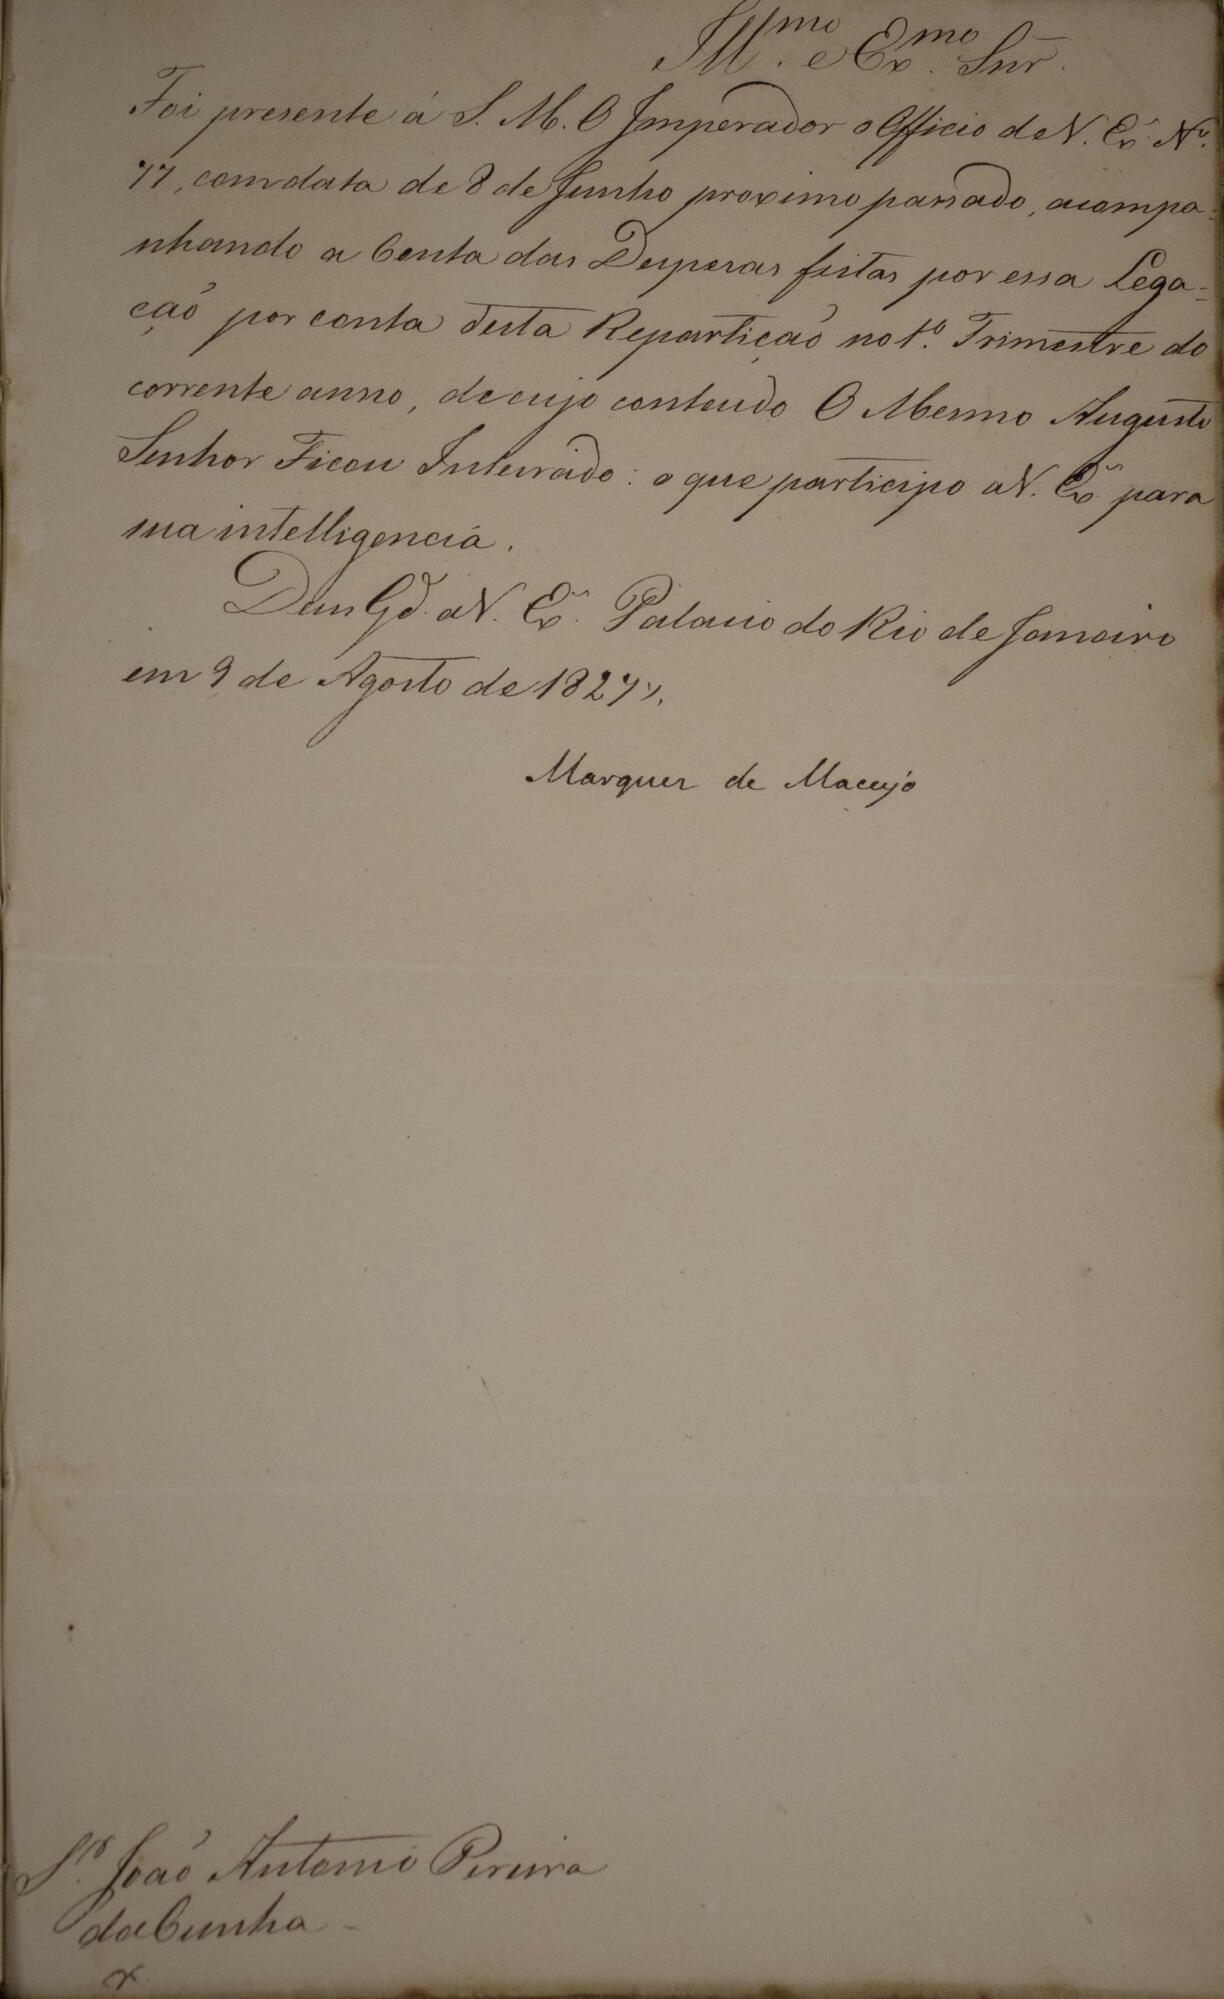 Ill.mo e Ex.mo Snr.
Foi presente á S. M. O Imperador o Officio de V. Ex.ª N.º
77, com data de 8 de Junho proximo passado, acompa-
nhando a Conta das Despesas feitas por essa Lega-
ção por conta desta Repartição no 1.º Trimestre do
corrente anno, de cujo conteudo O Mesmo Augusto
Senhor Ficou Inteirado: o que participo a V. Ex.ª para
sua intelligencia.
Deus G.de a V. Ex.ª Palacio do Rio de Janeiro
em 9 de Agosto de 1827
Marquez de Maceyó
S.r João Antonio Pereira
da Cunha